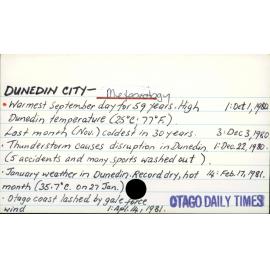 DUNEDIN CITY - Meteorology
• Warmest September day for 59 years. High 1: Oct 1, 1980
Dunedin temperature (25°C; 77°F.)
Last month (Nov.) coldest in 30 years. 3: Dec 3, 1980
• Thunderstorm causes disruption in Dunedin 1: Dec. 22, 1980.
(5 accidents and many sports washed out).
• January weather in Dunedin. Record dry, hot 14: Feb. 17, 1981.
month (35.7°C. on 27 Jan.)
• Otago coast lashed by gale force
wind 1: Apl. 14, 1981.
OTAGO DAILY TIMES